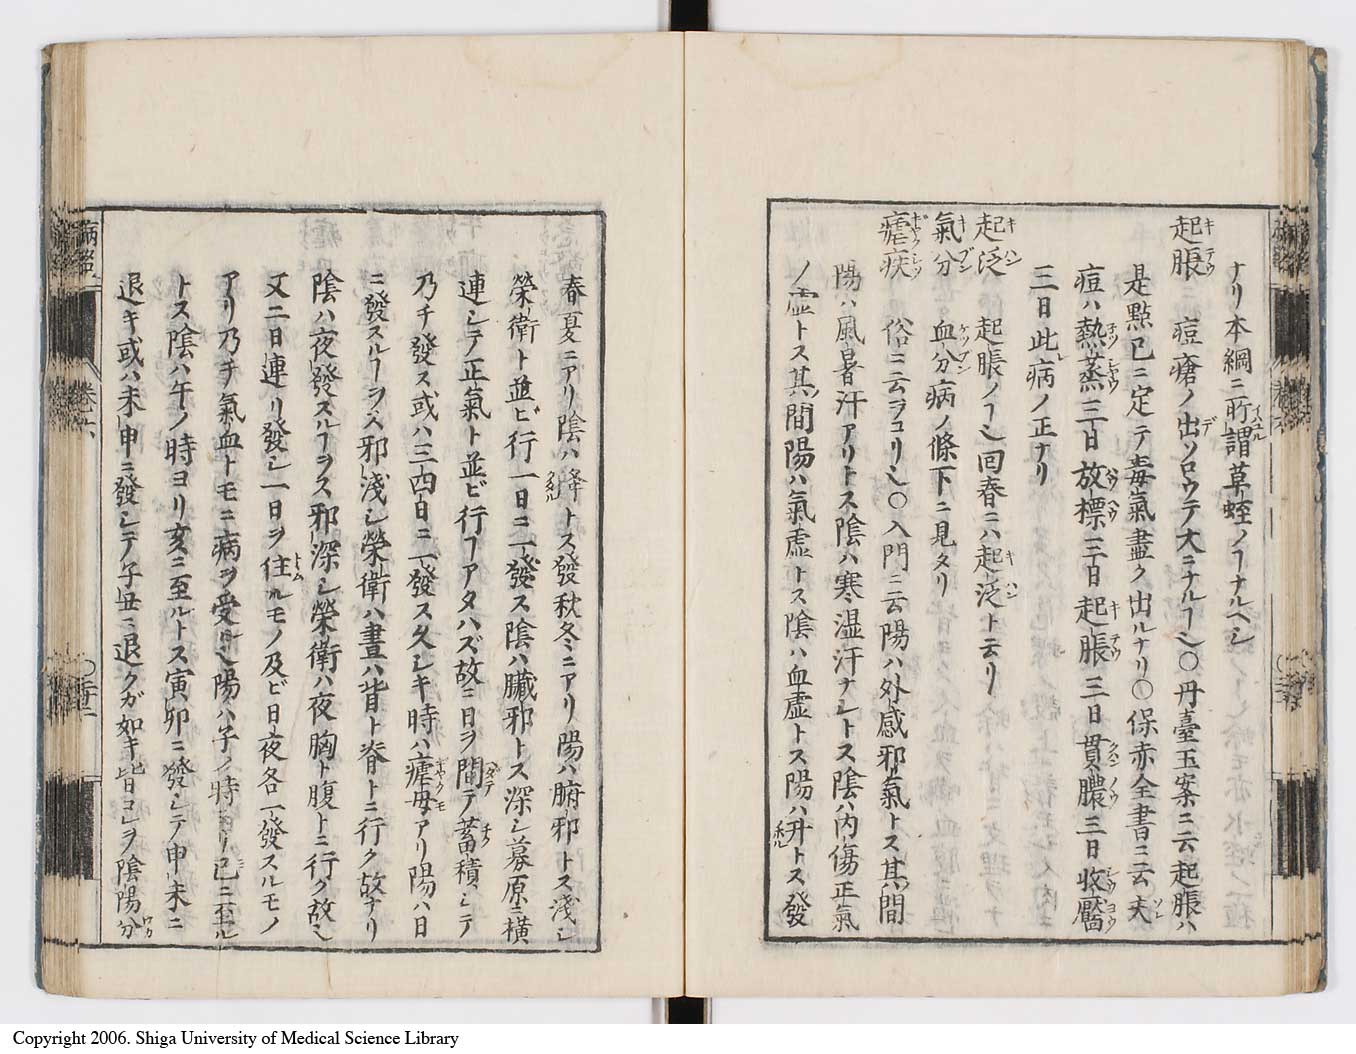 ナリ本綱ニ所謂草蛭ノヿナルヘシ
起脹 痘瘡ノ出ソロウテ大ニナルヿ也〇丹臺玉案ニ云起脹ハ
是㸃已ニ定テ毒氣盡ク出ルナリ〇保赤全書ニ云夫
痘ハ熱蒸三日放標三日起脹三日貫膿三日收靨
三日此病ノ正ナリ
起泛 起脹ノヿ也回春ニハ起泛ト云リ
氣分 血分病ノ條下ニ見タリ
瘧疾 俗ニ云ヲコリ也〇入門ニ云陽ハ外感邪氣トス其間
陽ハ風暑汗アリトス陰ハ寒濕汗ナシトス陰ハ内傷正氣
ノ虚トス其間陽ハ氣虚トス陰ハ血虚トス陽ハ升トス發
春夏ニアリ陰ハ降トス發秋冬ニアリ陽ハ腑邪トス淺シ
榮衛ト並ビ行一日ニ一發ス陰ハ臓邪トス深シ募原ニ横
連シテ正氣ト並ビ行ヿアタハズ故ニ日ヲ間テ蓄積シテ
乃チ發ス或ハ三四日ニ一發ス久シキ時ハ瘧母アリ陽ハ日
ニ發スルヿヲス邪淺シ榮衛ハ晝ハ背ト脊トニ行ク故ナリ
陰ハ夜發スルヿヲス邪深シ榮衛ハ夜胸ト腹トニ行ク故也
又二日連リ發シ一日ヲ住ルモノ及ビ日夜各一發スルモノ
アリ乃チ氣血トモニ病ヲ受ル也陽ハ子ノ時ヨリ巳ニ至ル
トス陰ハ午ノ時ヨリ亥ニ至ルトス寅卯ニ發シテ申未ニ
退キ或ハ未申ニ發シテ子丑ニ退クガ如キ皆コレヲ陰陽分
卷六
Copyright 2006. Shiga University of Medical Science Library